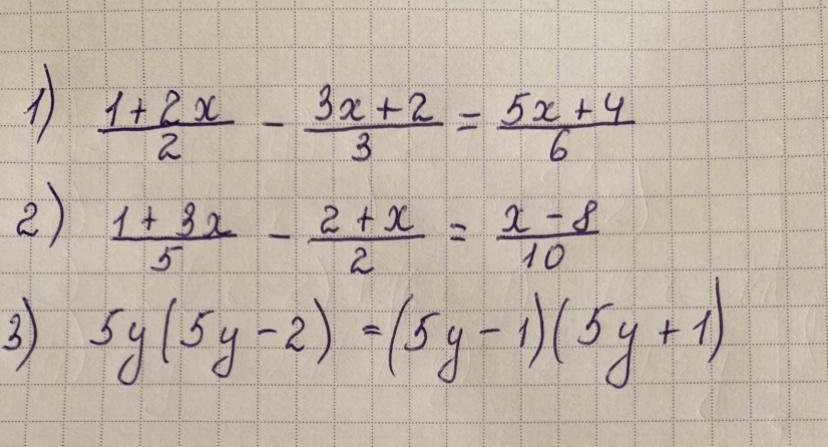 1) (1+2x)/2 - (3x+2)/3 = (5x+4)/6
2) (1+3x)/5 - (2+x)/2 = (x-8)/10
3) 5y(5y-2) = (5y-1)(5y+1)